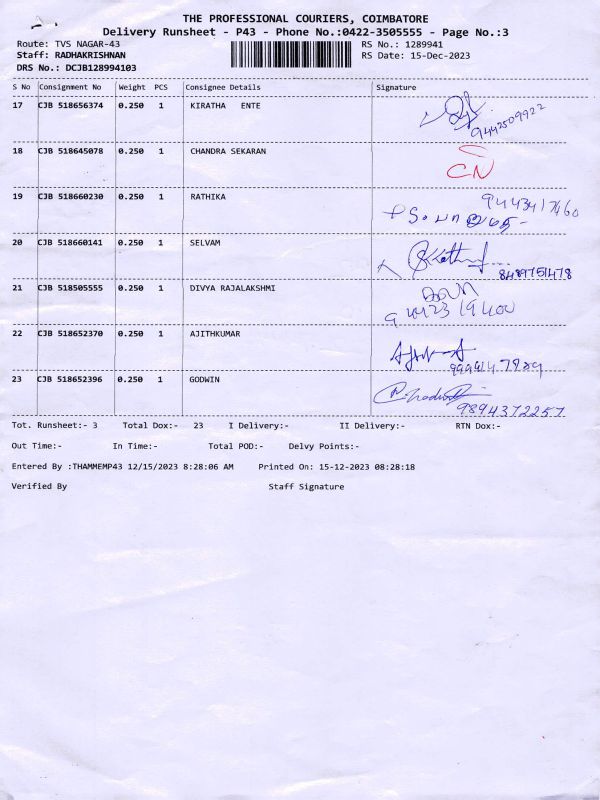 THE PROFESSIONAL COURIERS, COIMBATORE
Delivery Runsheet - P43 - Phone No.:0422-3505555 - Page No.:3
Route: TVS NAGAR-43 RS No.: 1289941
Staff: RADHAKRISHNAN RS Date: 15-Dec-2023
DRS No.: DCJB128994103
S No Consignment No Weight PCS Consignee Details Signature
17 CJB 518656374 0.250 1 KIRATHA ENTE
9442509922
18 CJB 518645078 0.250 1 CHANDRA SEKARAN
CN
19 CJB 518660230 0.250 1 RATHIKA
20 CJB 518660141 0.250 1 SELVAM
8489751478
21 CJB 518505555 0.250 1 DIVYA RAJALAKSHMI
22 CJB 518652370 0.250 1 AJITHKUMAR
23 CJB 518652396 0.250 1 GODWIN
9894372257
Tot. Runsheet:- 3 Total Dox:- 23 I Delivery:- II Delivery:- RTN Dox:-
Out Time:- In Time:- Total POD:- Delvy Points:-
Entered By :THAMMEMP43 12/15/2023 8:28:06 AM Printed On: 15-12-2023 08:28:18
Verified By Staff Signature